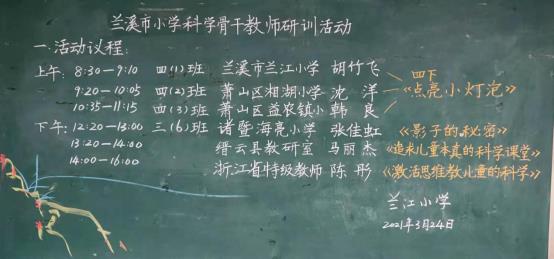 兰溪市小学科学骨干教师研训活动
一.活动议程:
上午: 8:30-9:10 四(1)班 兰溪市兰江小学 胡竹飞 四下
9:20-10:05 四(2)班 萧山区湘湖小学 沈 洋 《点亮小灯泡》
10:35-11:15 四(3)班 萧山区益农镇小 韩 良
下午: 12:20-13:00 三(6)班 诸暨海亮小学 张佳虹 《影子的秘密》
13:20-14:00 缙云县教研室 马丽杰 《追求儿童本真的科学课堂》
14:00-16:00 浙江省特级教师 陈 彤 《激活思维教儿童的科学》
兰江小学
2021年3月24日